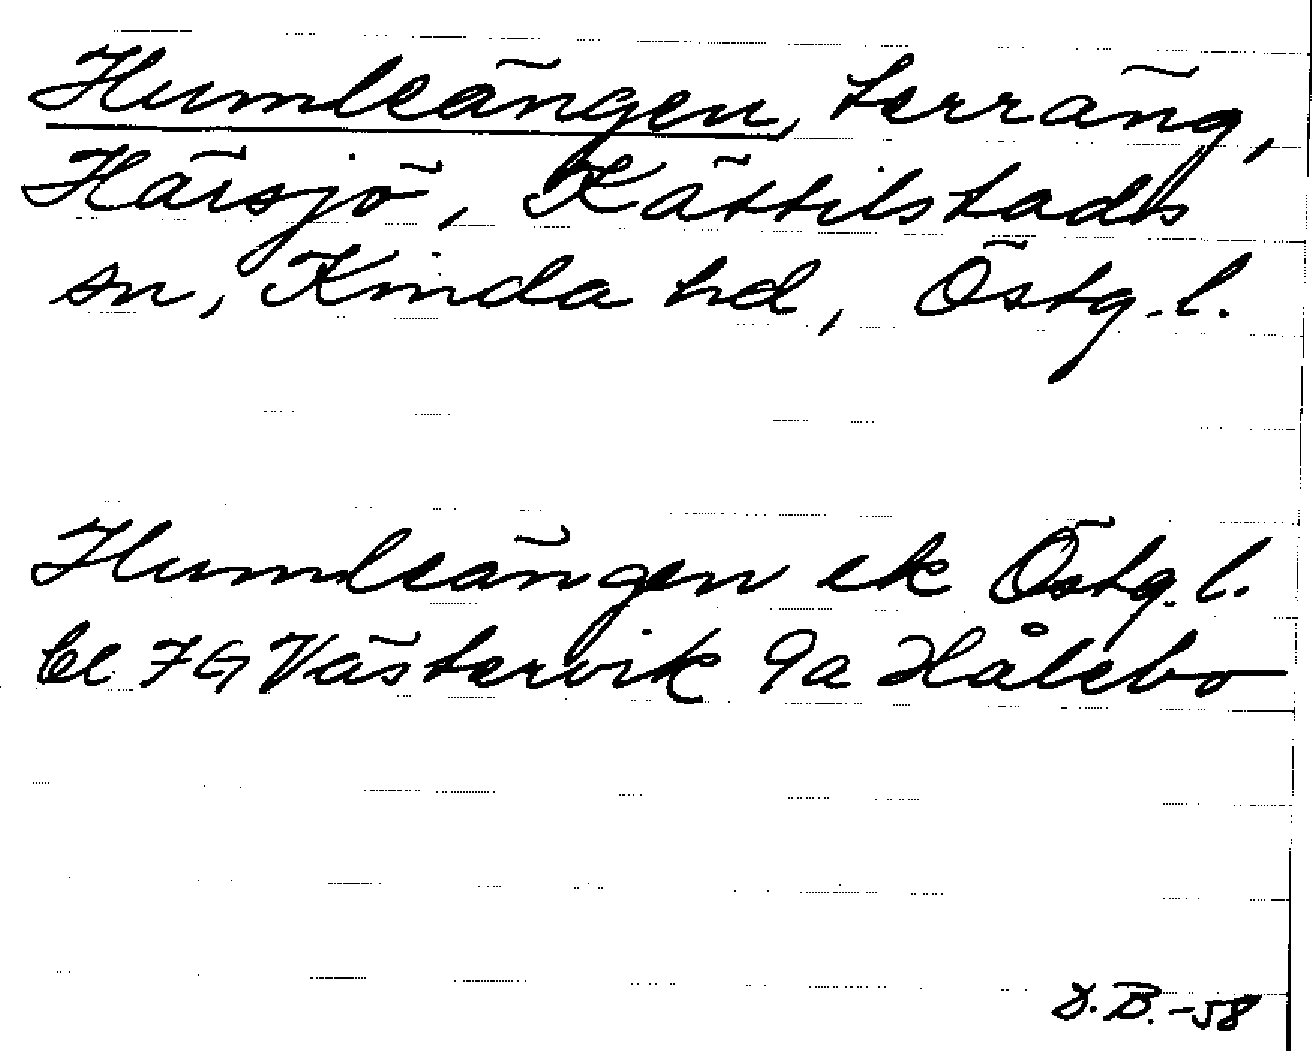 Humleängen, terräng,
Härsjö, Kättilstads
sn, Kinda hd, Östg. l.
Humleängen ek Östg. l.
bl 7G Västervik 9a Hålebo
D.B.-58